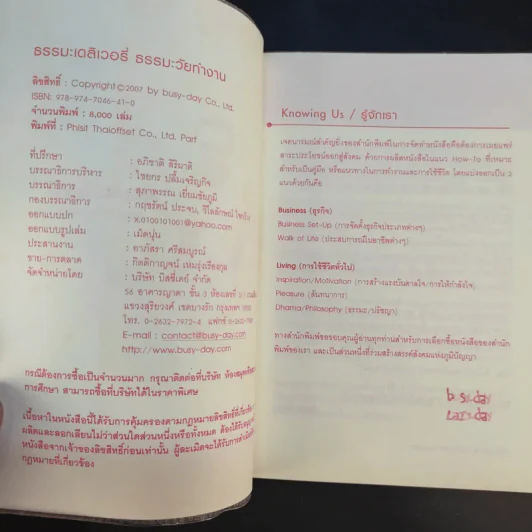 ธรรมะเดลิเวอรี่ ธรรมะวัยทำงาน
ลิขสิทธิ์ : Copyright©2007 by busy-day Co., Ltd.
ISBN: 978-974-7046-41-0
จำนวนพิมพ์ : 8,000 เล่ม
พิมพ์ที่ : Phisit Thaioffset Co., Ltd, Part
ที่ปรึกษา : อภิชาติ สิริผาติ
บรรณาธิการบริหาร : ไชยกร ปลื้มเจริญกิจ
บรรณาธิการ : สุภาพรรณ เยี่ยมชัยภูมิ
กองบรรณาธิการ : กฤชรัตน์ ประจบ, วิไลลักษณ์
ออกแบบปก : x.0100101001@yahoo.com
ออกแบบรูปเล่ม : เม็ดนุ่น
ประสานงาน : อาภัสรา ศรีสมบูรณ์
ขาย-การตลาด : กิตติกาญจน์ เหมรุ่งเรืองกุล
จัดจำหน่ายโดย : บริษัท บิสซี่เดย์ จำกัด
56 อาคารญาดา ชั้น 3 ห้องเลขที่
แขวงสุริยวงศ์ เขตบางรัก กรุงเทพฯ
โทร. 0-2632-7972-4 แฟกซ์
E-mail : contact@busy-day.com
http://www.busy-day.com
กรณีต้องการซื้อเป็นจำนวนมาก กรุณาติดต่อที่บริษัท
การศึกษา สามารถซื้อที่บริษัทได้ในราคาพิเศษ
เนื้อหาในหนังสือนี้ได้รับการคุ้มครองตามกฎหมายลิขสิทธิ์
ผลิตและลอกเลียนไม่ว่าส่วนใดส่วนหนึ่งหรือทั้งหมด ต้องได้รับ
หนังสือจากเจ้าของลิขสิทธิ์ก่อนเท่านั้น ผู้ละเมิดจะได้รับการดำเนิน
กฎหมายที่เกี่ยวข้อง
Knowing Us / รู้จักเรา
เจตนารมณ์สำคัญยิ่งของสำนักพิมพ์ในการจัดทำหนังสือคือต้องการเผยแพร่
สาระประโยชน์ออกสู่สังคม ด้วยการผลิตหนังสือในแนว How-To ที่เหมาะ
สำหรับเป็นคู่มือ หรือแนวทางในการทำงานและการใช้ชีวิต โดยแบ่งออกเป็น 2
แนวด้วยกันคือ
Business (ธุรกิจ)
Business Set-Up (การจัดตั้งธุรกิจประเภทต่างๆ)
Walk of Life (ประสบการณ์ในอาชีพต่างๆ)
Living (การใช้ชีวิตทั่วไป)
Inspiration/Motivation (การสร้างแรงบันดาลใจ/การให้กำลังใจ)
Pleasure (สันทนาการ)
Dhama/Philosophy (ธรรมะ/ปรัชญา)
ทางสำนักพิมพ์ขอขอบคุณผู้อ่านทุกท่านสำหรับการเลือกซื้อหนังสือของสำนัก
พิมพ์ของเรา และเป็นส่วนหนึ่งที่ร่วมสร้างสรรค์สังคมแห่งภูมิปัญญา
busy-day